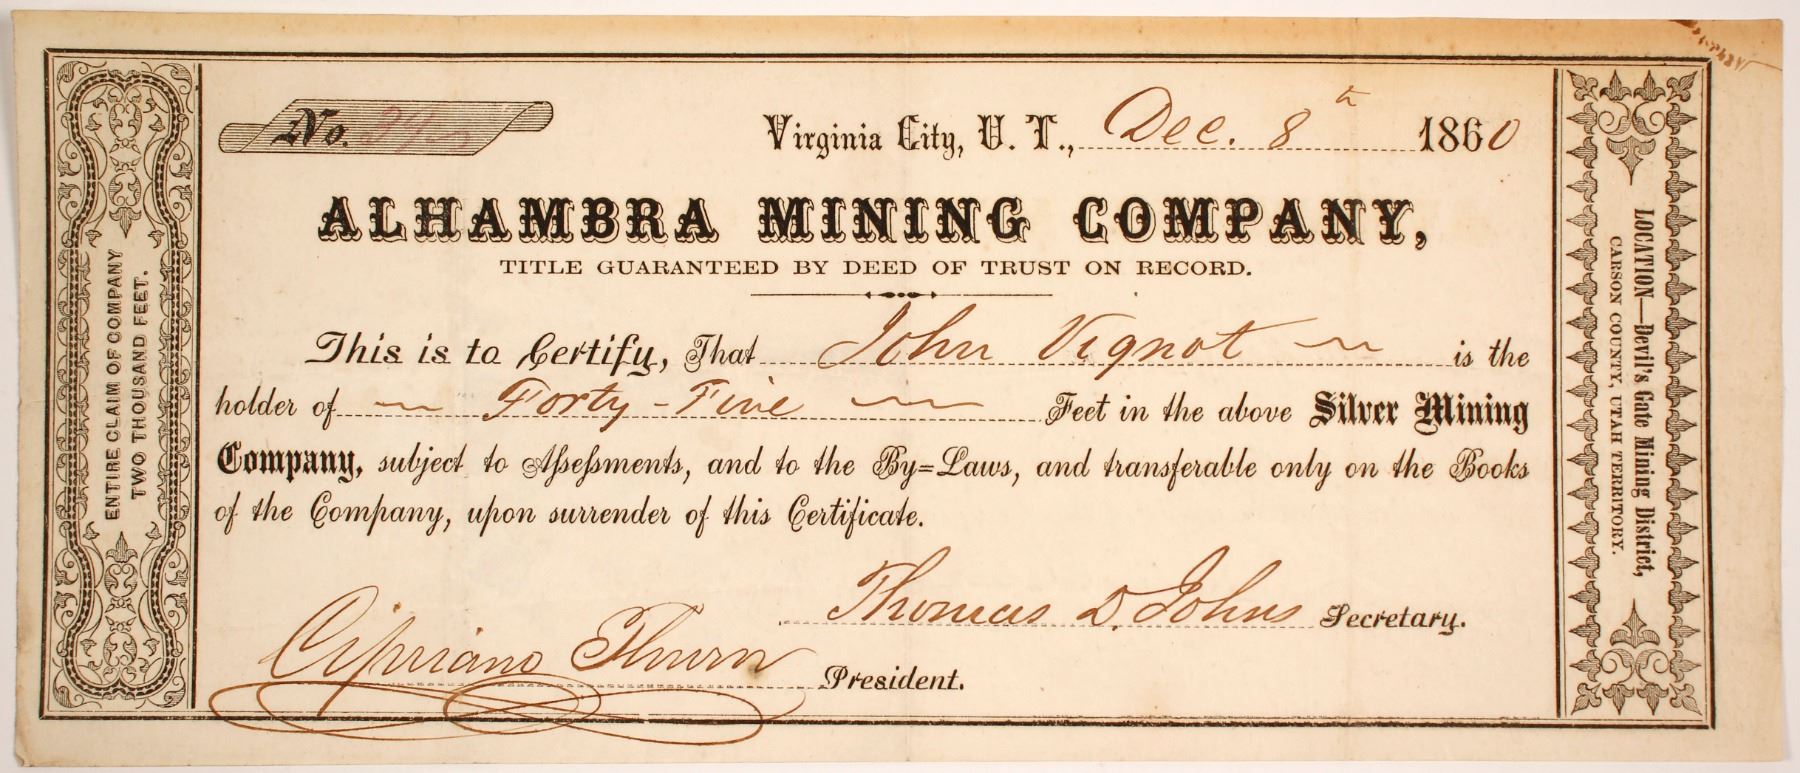 No. 340
Virginia City, U. T., Dec. 8th 1860
ALHAMBRA MINING COMPANY,
TITLE GUARANTEED BY DEED OF TRUST ON RECORD.
This is to Certify, That John Vignot is the
holder of Forty-Five Feet in the above Silver Mining
Company, subject to Assessments, and to the By=Laws, and transferable only on the Books
of the Company, upon surrender of this Certificate.
Thomas D. Johns Secretary.
Cipriano Thurn President.
ENTIRE CLAIM OF COMPANY
TWO THOUSAND FEET.
LOCATION—Devil's Gate Mining District,
CARSON COUNTY, UTAH TERRITORY.